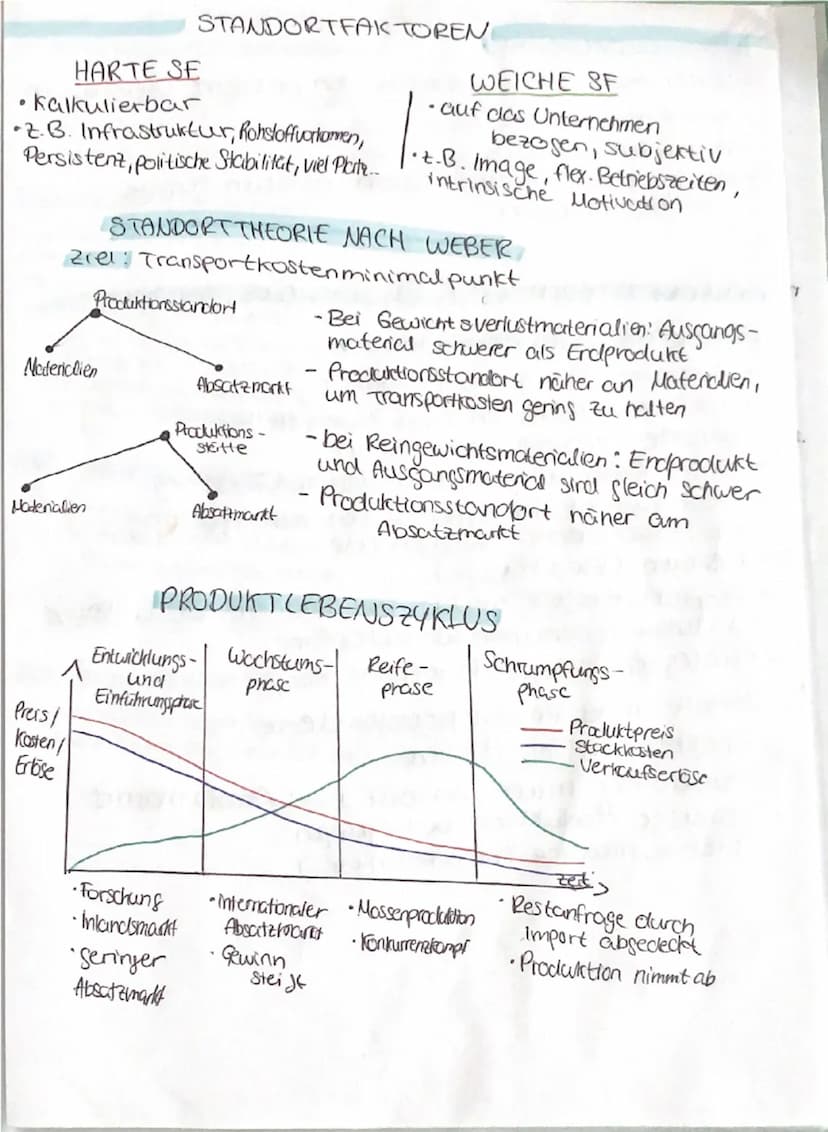 STANDORTFAKTOREN
HARTE SF
• kalkulierbar
• z.B. Infrastruktur, Rohstoffvorkommen,
Persistenz, politische Stabilität, viel Platz...
WEICHE SF
• auf das Unternehmen
bezogen, subjektiv
• z.B. Image, flex. Betriebszeiten,
intrinsische Motivation
STANDORTTHEORIE NACH WEBER
Ziel: Transportkostenminimalpunkt
Produktionsstandort
Materialien
Absatzmarkt
- Bei Gewichtsverlustmaterialien: Ausgangs-
material schwerer als Endprodukt
- Produktionsstandort näher an Materialien,
um Transportkosten gering zu halten
Produktions-
stätte
Materialien
Absatzmarkt
- bei Reingewichtsmaterialien: Endprodukt
und Ausgangsmaterial sind gleich schwer
- Produktionsstandort näher am
Absatzmarkt
PRODUKTLEBENSZYKLUS
Entwicklungs-
und
Einführungsphase
Wachstums-
phase
Reife-
phase
Schrumpfungs-
phase
Preis/
Kosten/
Erlöse
Produktpreis
Stückkosten
Verkaufserlöse
Zeit
• Forschung
• Inlandsmarkt
• geringer
Absatzmarkt
• Internationaler
Absatzmarkt
• Gewinn
steigt
• Massenproduktion
• Konkurrenzkampf
• Restanfrage durch
Import abgedeckt
• Produktion nimmt ab